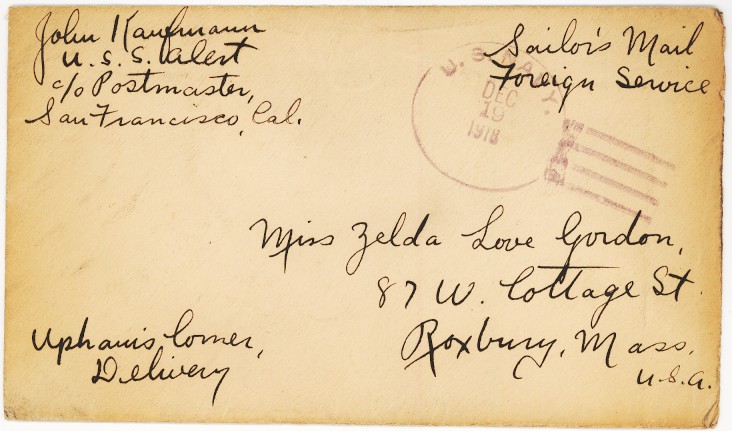 John Kaufmann
U. S. S. Alert
c/o Postmaster,
San Francisco, Cal.
Sailor's Mail
Foreign Service
U.S. NAVY.
DEC
19
1918
Miss Zelda Love Gordon,
87 W. Cottage St.
Roxbury, Mass.
U.S.A.
Uphams Corner,
Delivery